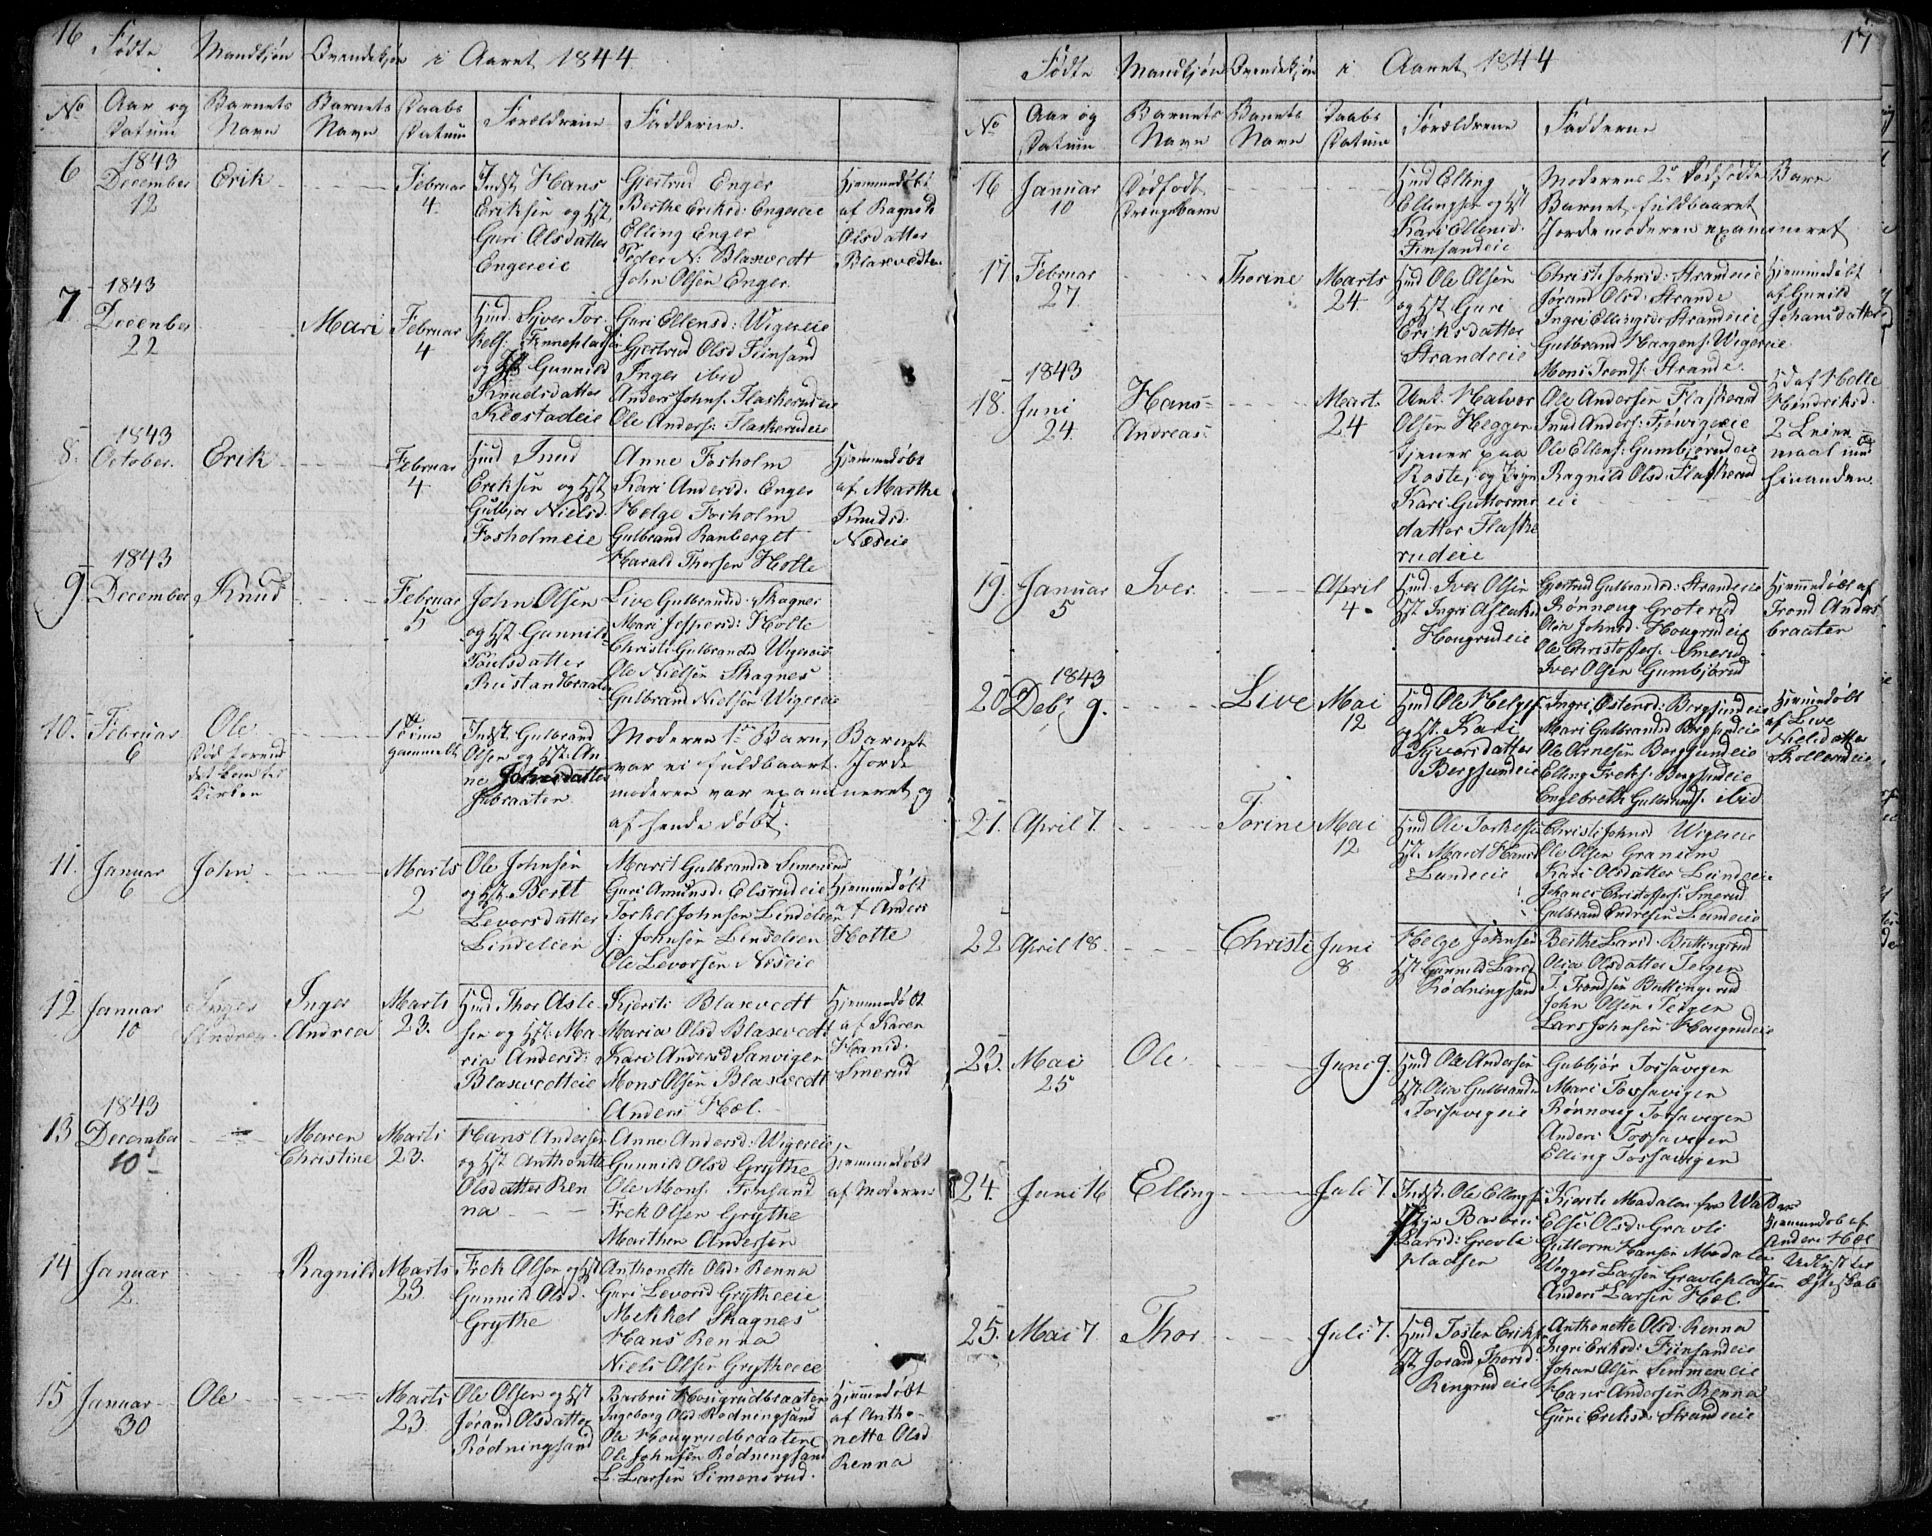 16 Fødte Mandkjøn Qvendekjøn i Aaret 1844
No Aar og Datum Barnets Navn Barnets Navn Daabs Datum Forældrene Fadderne.
6 1843 December 12 Erik Februar 4.
Indst Hans
Eriksen og Hst
Guri Olsdatter
Engereie
Gjertrud Enger
Berthe Eriksd: Engereie
Elling Enger
Peder N: Blaxvedt
John Olsen Enger
Hjemmedøbt
af Ragnild
Olsdatter
Blaxvedte
7 1843 December 22 Mari Februar 4
Huusd. Syver Tor-
kels: Finneplads
og Hst Gunnild
Knudsdatter
Klostadeie
Guri Ellensd: Wigereie
Gjertrud Olsd Fiinsand
Inger ibid
Anders Johns. Flaskerudeie
Ole Anders: Flaskerudeie
8. 1843 October. Erik Februar 4
Huusd Knud
Eriksen og Hst
Gulbjør Nielsd.
Fosholmeie
Anne Fosholm
Kari Andersd. Enger
Helge Fosholm
Gulbrand Ranberget
Harald Thorsen Holte
Hjemmedøbt
af Marthe
Knudsd.
Næseie
9. 1843 December Knud Februar 5
John Olsen
og Hst Gunnild
Poulsdatter
Rustandbraaten
Live Gulbrandsd: Skagnes
Mari Jespersd: Holte
Christi Gulbrandsd Wigereie
Ole Nielsen Skagnes
Gulbrand Nielsen Wigereie
10. Februar 6 Ole
Død forend
det kom til
Kirken
1 Time
gammelt
Indst. Gulbrand
Olsen og Hst. An
ne Johnsdatter
Moderens 1ste Barn,
var ei fuldbaart.
moderen var examineret og
af hende døbt.
Barnet
Jorde
11. Januar 6 John Marts 2
Ole Johnsen
og Hst Beritt
Levorsdatter
Lindelien
Marit Gulbrandsd Simensrud
Guri Amundsd: Elsrudeie
Torkel Johnsen Lindelien
J: Johnsen Lindelien
Ole Levorsen Næseie
Hjemmedøbt
af Anders
Holte
12 Januar 10 Inger Andrea Inger Andrea Marts 23.
Huusd Thor Asle
sen og Hst Ma
ria Andersd:
Blaxvedteie
Kjersti Blaxvedt
Maria Olsd Blaxvedt
Kari Andersd Sanvigen
Mons Olsen Blaxvedt
Anders Hæl.
Hjemmedøbt
af Karen
Hansd.
Smerud
13 1843 December 10 Maren Christine Marts 23.
Hans Andersen
og Hst Anthonette
Olsdatter Ren
na
Anne Andersd: Wigereie
Gunnild Olsd Grythe
Ole Mons. Finsand
Frek Olsen Grythe
Marthen Andersen
Hjemmedøbt
af Moderen
14 Januar 2. Ragnild Marts 23
Frek Olsen og Hst
Gunnild Olsd.
Grythe
Anthonette Olsd: Renna
Guri Levorsd Grytheeie
Mekkel Skagnes
Hans Renna
Niels Olsen Grytheeie
15 Januar 30 Ole Marts 23
Ole Olsen og Hst
Jørand Olsdatter
Rødningsand
Barbro Hougrudbraaten
Ingeborg Olsd Rødningsand
Ole Hougrudbraaten
Ole Johnsen Rødningsand
L. Larsen Simensrud.
Hjemmedøbt
af Antho-
nette Olsd
Renna
17
Fødte Mandkjøn Qvendekjøn i Aaret 1844
No Aar og Datum Barnets Navn Barnets Navn Daabs Datum Forældrene Fadderne
16 Januar 10 Dødfødt Drengebarn
Huusd Elling
Ellingsen og Hst
Kari Ellensd.
Finsandeie
Moderens 2det Dødfødte Barn
Barnet fuldbaaret
Jordemoderen examineret
17 Februar 27. Thorine Marts 24.
Huusd Ole Olsen
og Hst Guri
Eriksdatter
Strandeeie
Christi Johnsd: Strandeeie
Jorand Olsd: Strande
Ingri Ellingsd: Strandeeie
Gulbrand Haagens. Wigereie
Mons Tronds: Strande.
Hjemmedøbt
af Gunild
Johansdatter
18. 1843 Juni 24. Hans Andreas Mart. 24
Unk. Halvor
Olsen Hegger
tjener paa
Roste, og Pige
Kari Guttorms
datter Flaske
rudeie
Ole Andersen Flaskerud
Knud Anders: Fjøsvigeeie
Ole Ellens: Gumbjørudeie
Ragnild Olsd. Flaskerud
eie
Hd af Helle
Hendriksd.
2 Leier
maal med
hinanden
19. Januar 5 Iver April 4
Huusd Iver Olsen
Hst Ingri Aslaksd
Hougrudeie
Gjertrud Gulbrandsd: Strandeeie
Rønnoug Groterud
Olia Johnsd: Hougrudeie
Ole Christoffers: Smerud
Iver Olsen Gumbjørud
Hjemmedøbt af
Trond Anders
braaten
20 1843 Debr 9. Live Mai 12
Huusd Ole Helges
og Hst. Kari
Syversdatter
Bergsundeie
Ingri Østensd: Bergsundeie
Mari Gulbrandsd Bergsundeie
Ole Arnesen Bergsundeie
Elling Freks: Bergsundeie
Engebreth Gulbrands. ibid
Hjemmedøbt
af Live
Nielsdatter
Skollerudeie
21. April 7. Torine Mai 12
Huusd Ole Torkelsen
Hst. Marit Hansd
Lundeeie
Christi Johnsd Wigereie
Ole Olsen Graneim
Kari Olsdatter Lundeeie
Johanes Christoffers: Smerud
Gulbrand Andresen Lundeeie
22 April 18. Christi Juni 8
Helge Johnsen
Hst. Gunnild Larsd
Rødningsand
Berthe Larsd. Buttingsrud
Olia Olsdatter Teigen
T. Trondsen Buttingsrud
John Olsen Teigen
Lars Johnsen Hougrudeie
23. Mai 25 Ole Juni 9.
Huusd Ole Andersen
Hst. Olia Gulbrandsd
Torsavigeie
Gubbjør Torsavigen
Mari Torsavigen
Rønnoug Torsavigen
Anders Torsavigen
Elling Torsavigen
24. Juni 16 Elling Juli 7.
Indst: Ole Ellingsen
Pige Barbro
Larsd: Gravle
pladsen
Kjersti Madalen fra Walders
Else Olsd: Gravli
Guttorm Hansen Madalen
Wegger Larsen Gravlepladsen
Anders Larsen Hæl
Hjemmedøb af
Anders Hæl
Udlyst til
Ægteskab
25. Mai 7. Thor Juli 7.
Huusd Tosten Eriks
Hst Jorand Thorsd.
Ringrudeie
Anthonette Olsd: Renna
Ingri Eriksd: Fiinsandeie
Johan Olsen Simmeneie
Hans Andersen Renna
Guri Eriksd: Strandeeie